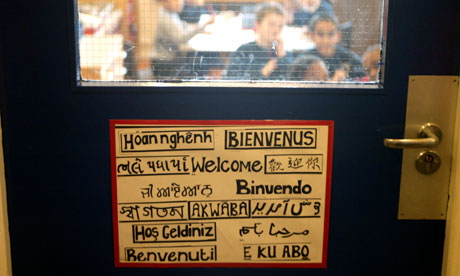 Hoan nghênh BIENVENUS
ભલે પધાર્યા Welcome 歡迎你
Binvendo
স্বাগতম AKWABA
Hoş Geldiniz
Benvenuti E KU ABO